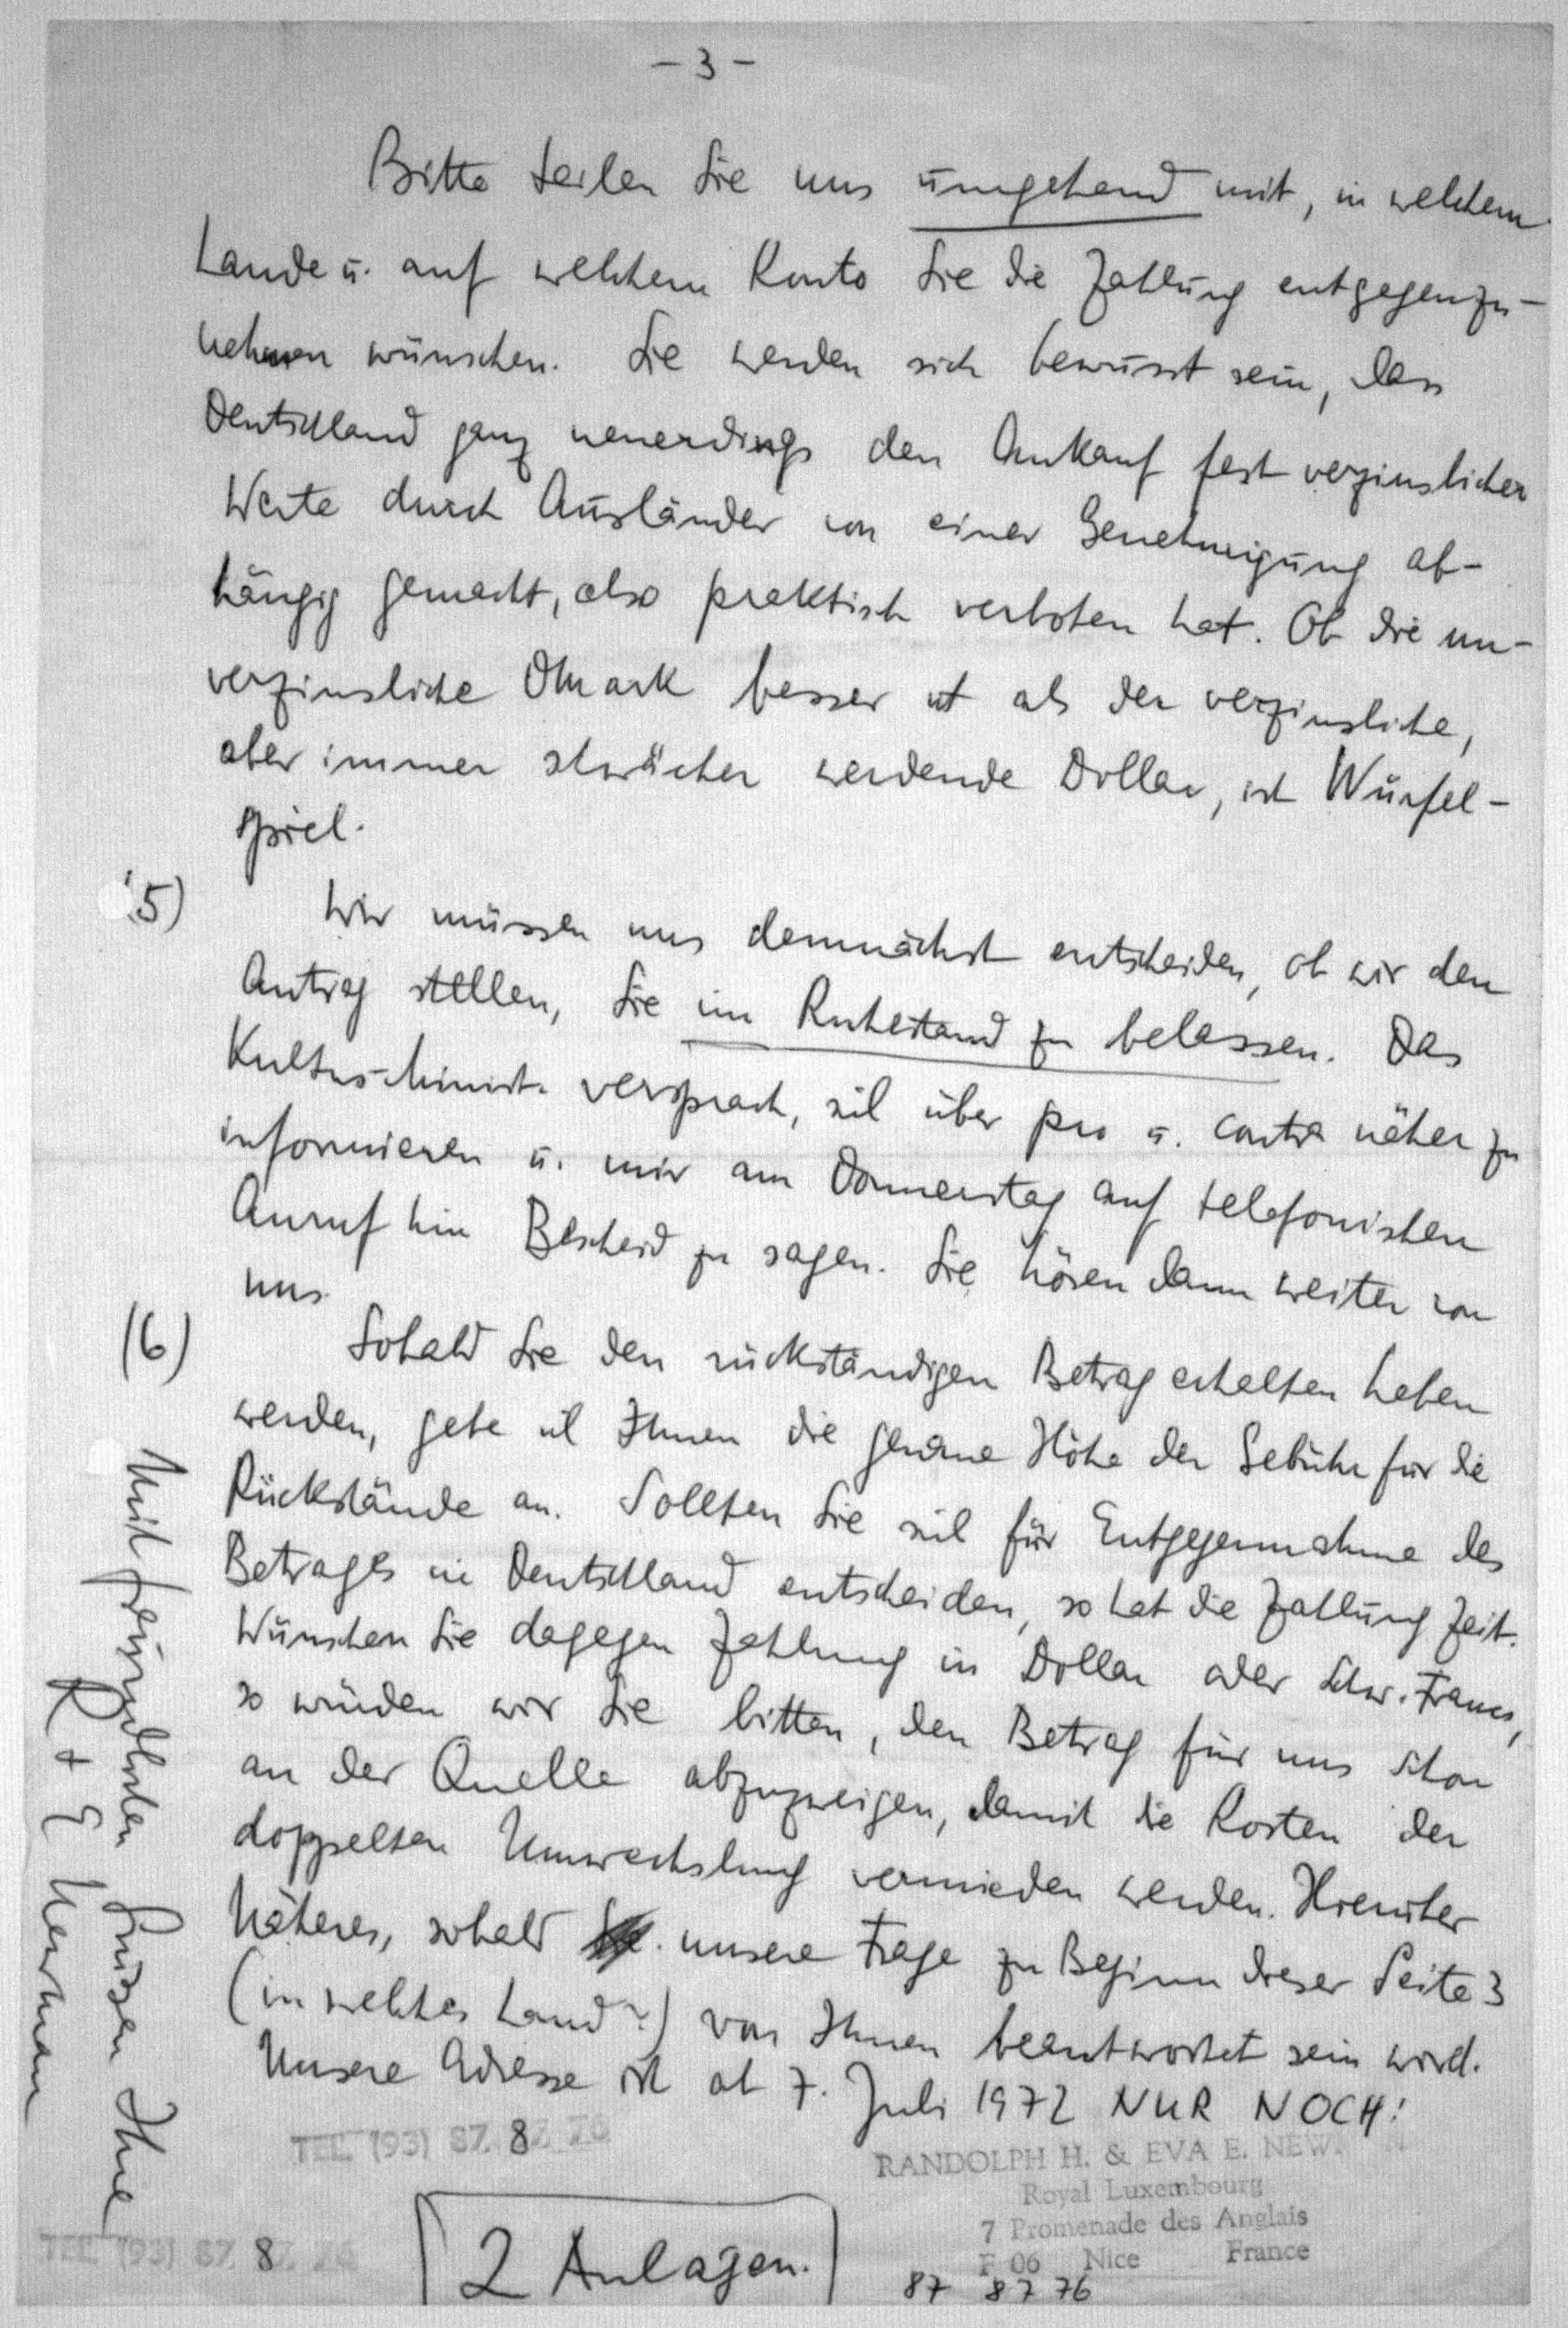 - 3 -
Bitte teilen Sie uns umgehend mit, in welchem
Lande u. auf welchem Konto Sie die Zahlung entgegenzu-
nehmen wünschen. Sie werden sich bewusst sein, dass
Deutschland ganz neuerdings den Ankauf fest verzinslicher
Werte durch Ausländer von einer Genehmigung ab-
hängig gemacht, also praktisch verboten hat. Ob die un-
verzinsliche DMark besser ist als der verzinsliche,
aber immer schwächer werdende Dollar, ist Würfel-
spiel.
5) Wir müssen uns demnächst entscheiden, ob wir den
Antrag stellen, Sie im Ruhestand zu belassen. Das
Kultus-Minist. versprach, sich über pro u. contra näher zu
informieren u. mir am Donnerstag auf telefonischen
Anruf hin Bescheid zu sagen. Sie hören dann weiter von
uns.
(6) Sobald Sie den rückständigen Betrag erhalten haben
werden, gebe ich Ihnen die genaue Höhe der Gebühr für die
Rückstände an. Sollten Sie sich für Entgegennahme des
Betrages in Deutschland entscheiden, so hat die Zahlung Zeit.
Wünschen Sie dagegen Zahlung in Dollar oder Schw. Francs,
so würden wir Sie bitten, den Betrag für uns schon
an der Quelle abzuzweigen, damit die Kosten der
doppelten Umwechslung vermieden werden. Hierüber
Näheres, sobald unsere Frage zu Beginn dieser Seite 3
(in welches Land?) von Ihnen beantwortet sein wird.
Unsere Adresse ist ab 7. Juli 1972 NUR NOCH:
TEL. (93) 87. 87. 76
RANDOLPH H. & EVA E. NEW
Royal Luxembourg
7 Promenade des Anglais
F 06 Nice France
87 87 76
2 Anlagen.
TEL. (93) 87. 87. 76
Mit freundlichen Grüssen Ihre
R + E Newman